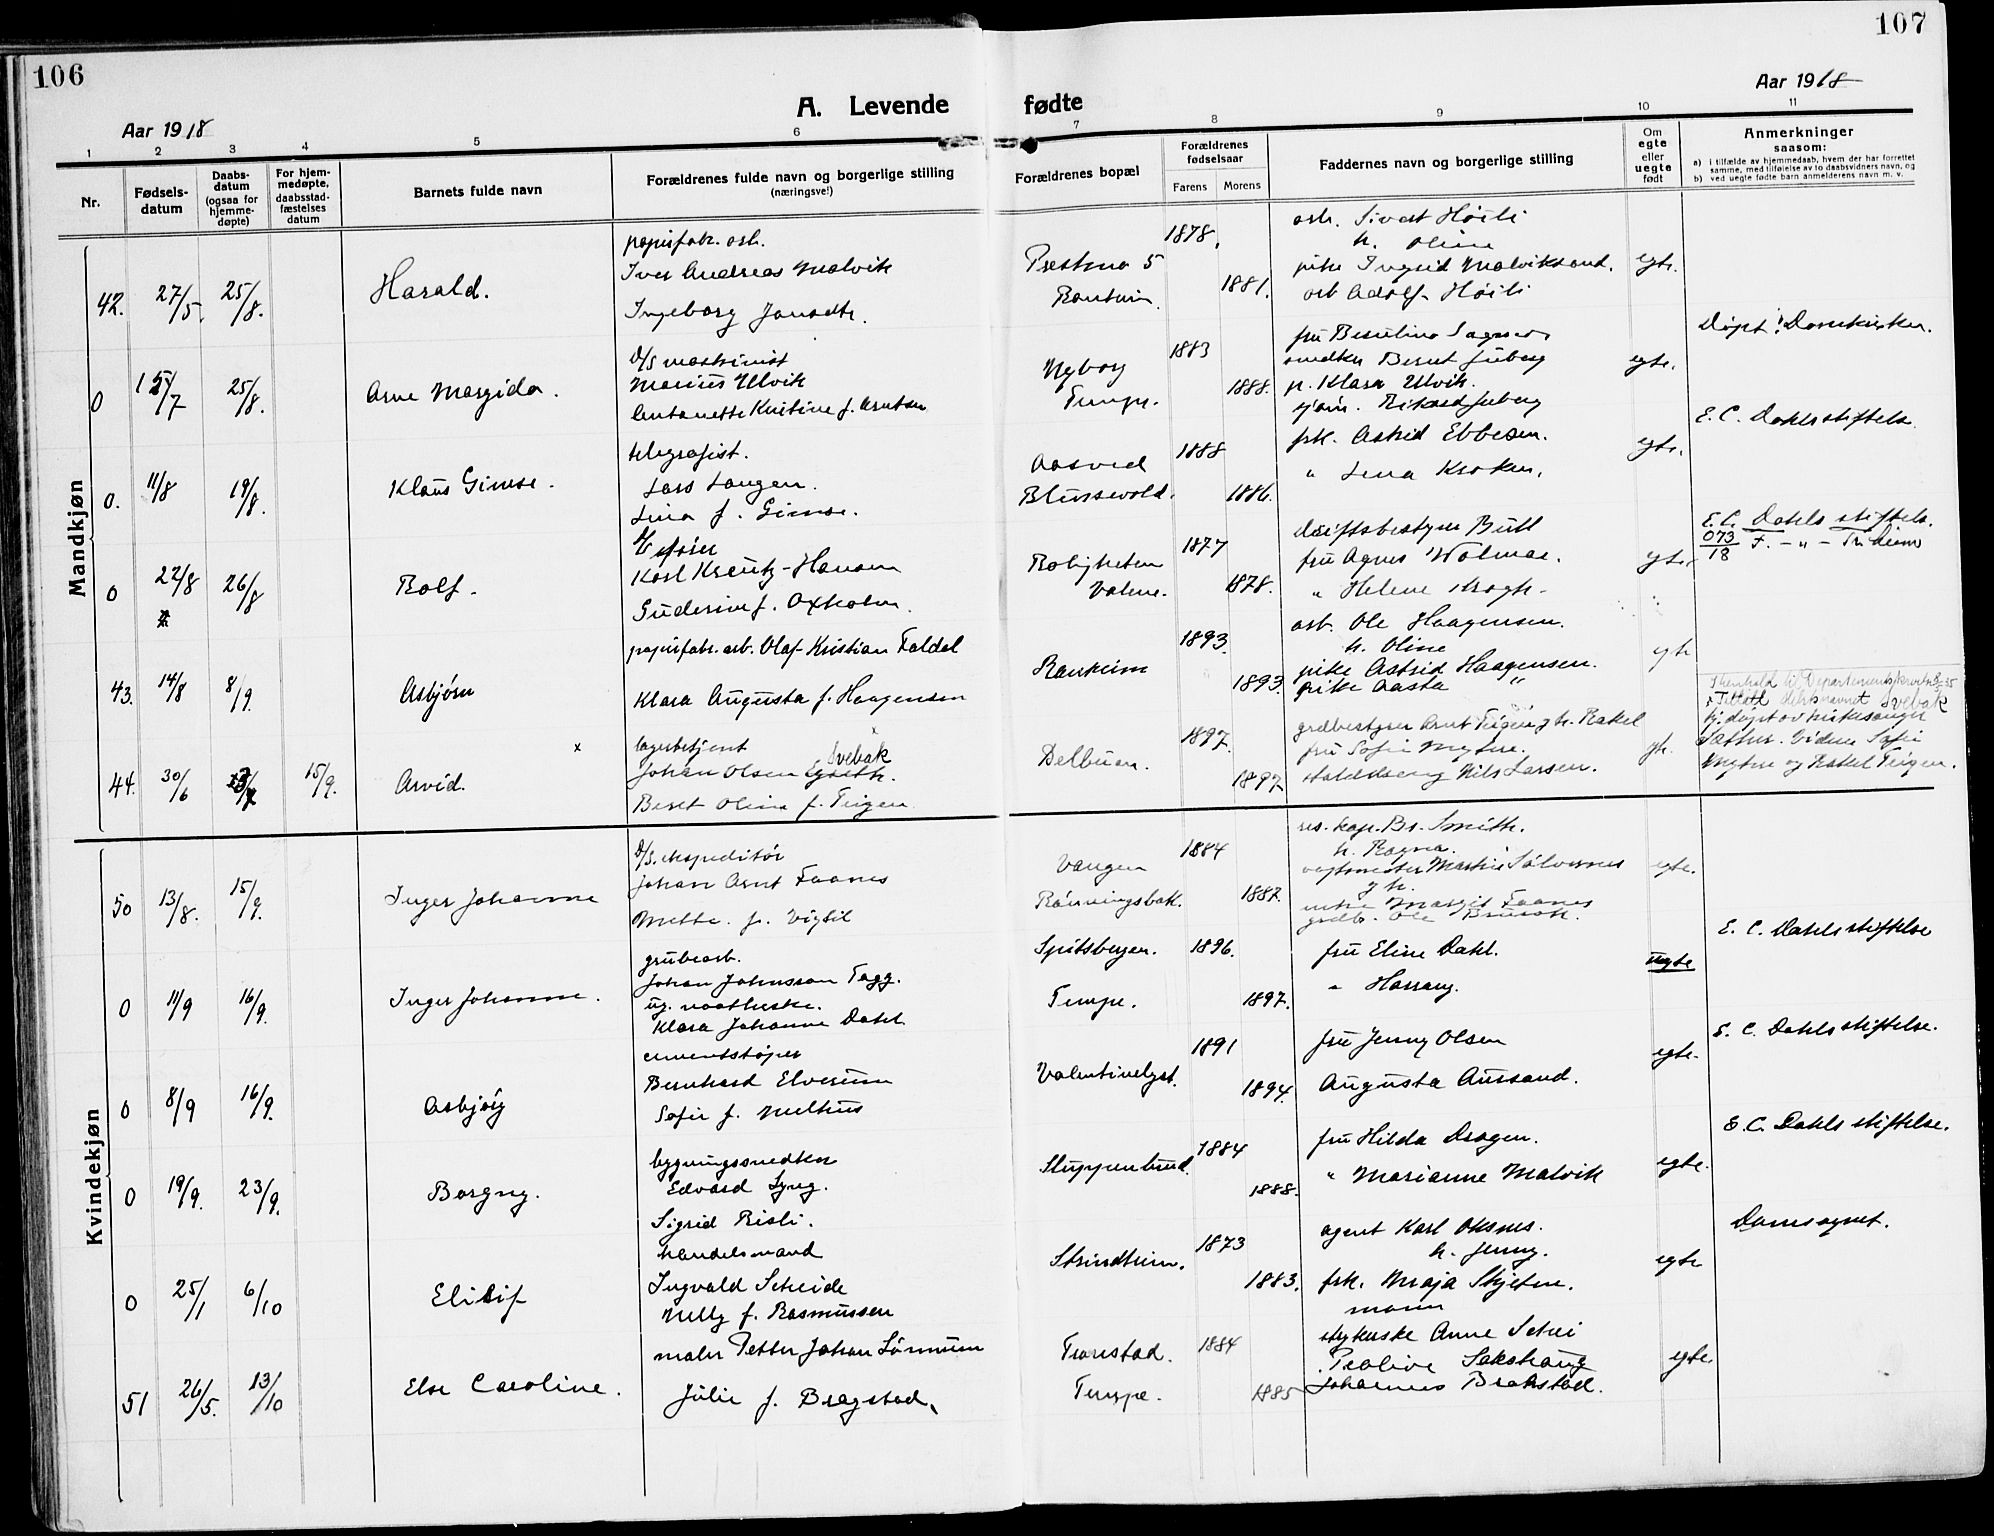 106
107
A. Levende fødte
Aar 1918
Aar 1918
1 2 3 4 5 6 7 8 9 10 11
Nr.
Fødsels-
datum
Daabs-
datum
(ogsaa for
hjemme-
døpte)
For hjem-
medøpte,
daabsstad-
fæstelses
datum
Barnets fulde navn
Forældrenes fulde navn og borgerlige stilling
(næringsvei)
Forældrenes bopæl
Forældrenes
fødselsaar
Farens Morens
Faddernes navn og borgerlige stilling
Om
egte
eller
uegte
født
Anmerkninger
saasom:
a) i tilfælde av hjemmedaab, hvem der har forrettet
samme, med tilføielse av to daabsvidners navn, og
b) ved uegte fødte barn anmelderens navn m. v.
Mandkjøn
42. 27/5. 25/8. Harald.
papirfabr. arb.
Iver Andreas Malvik
Ingeborg Jonsdtr.
Ranheim
1878.
1881.
arb. Sivert Høili
h. Oline
pike Ingrid Malviksand.
arb Adolf Høili
egte.
0 15/7 25/8. Arne Margido.
D/S maskinist
Marius Ulvik
Antonette Kristine f. Arntsen
Nyborg
Tempe.
1883
1888.
snedker Bernt Juberg
p. Klara Ulvik.
Rikard Juberg
egte.
Døpt i Domkirken.
0. 11/8 19/8. Klaus Gimse.
telegrafist.
Lars Langen.
Lina f. Gimse.
Aasved
Blussevold.
1888
1886.
frk. Astrid Ebbesen.
" Lina Kroken.
egte.
E. C. Dahls stiftelse.
0 22/8 26/8 Rolf.
Karl Kreutz-Hansen
Guderine f. Oxholm.
Roligheten
1877
1878.
driftsbestyrer Bull
fru Agnes Wolmar.
" Helene Krogh.
egte.
E. C. Dahls stiftelse.
073/18
43. 14/8 8/9. Asbjørn
papirfabr. arb. Olaf Kristian Foldal
Klara Augusta f. Haagensen
Ranheim
1893.
1893.
arb. Ole Haagensen.
h. Oline
pike Astrid Haagensen.
pike Aasta "
egte
44. 30/6 15/9. Arvid.
x
lagerbetjent Svebak
Johan Olsen
Beret Olina f. Teigen
Delbuen.
1897.
1897
grdbestyrer Arnt Teigen og h. Rakel
fru Sofie Mytne.
Nils Larsen.
Tillatt slektsnavnet Svebak
hj.døpt av kirkesanger
Sætter. Vidner Sofie
Mytne og Rakel Teigen.
Kvindekjøn
50 13/8. 15/9. Inger Johanne
D/S. ekspeditør
Johan Arnt Faanes
Mette f. Vigtil
Vangen
Rønningsbak.
1884
1887.
res. kap. Br. Smith.
h. Ragna.
vagtmester Martin Sølvernes
og h.
enke Margit Faanes
egte.
0 11/9 16/9. Inger Johanne.
grubearb.
ug. vaskerske.
Klara Johanne Dahl
Spitsbergen.
Tempe.
1896.
1897.
fru Eline Dahl.
uegte
E. C. Dahls stiftelse
0 8/9 16/9. Asbjørg
cementstøper
Bernhard Elverum
Sofie f. Melhus
Valentinelyst.
1891
1894.
fru Jenny Olsen
Augusta Aursand.
egte.
E. C. Dahls stiftelse.
0 19/9. 23/9. Borgny.
bygningssnedker
Edvard Lyng.
Sigrid Risli.
1884
1888.
fru Hilda Dragen.
" Marianne Malvik
egte.
E. C. Dahls stiftelse.
0 25/1 6/10 Elisif
handelsmand
Ingvald Scheide
Nelly f. Rasmussen
Strindheim.
1873
1883.
agent Karl Oksnes.
h. Jenny.
frk. Maja Skjetne.
egte
Domsognet.
51 26/5. 13/10 Else Caroline.
maler Petter Johan Sørmum
Julie f. Bragstad.
Tempe.
1884
1885
sykerske Anne Schei
Peolive Sakshaug
Johannes Brakstad.
egte.